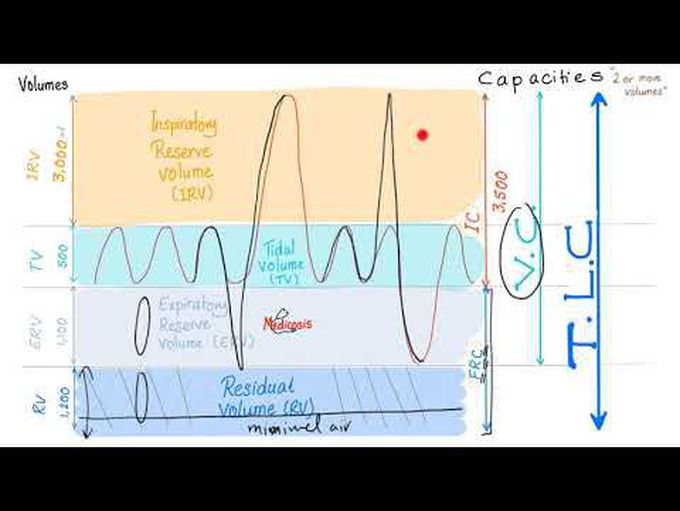 Volumes
Capacities
"2 or more
volumes"
IRV
3,000
Inspiratory
Reserve
volume
(IRV)
IC
3,500
V.C.
T.L.C
TV
500
Tidal
volume
(TV)
ERV
1,100
Expiratory
Reserve
Volume (ERV)
Medicosis
FRC
RV
1,200
Residual
Volume (RV)
air